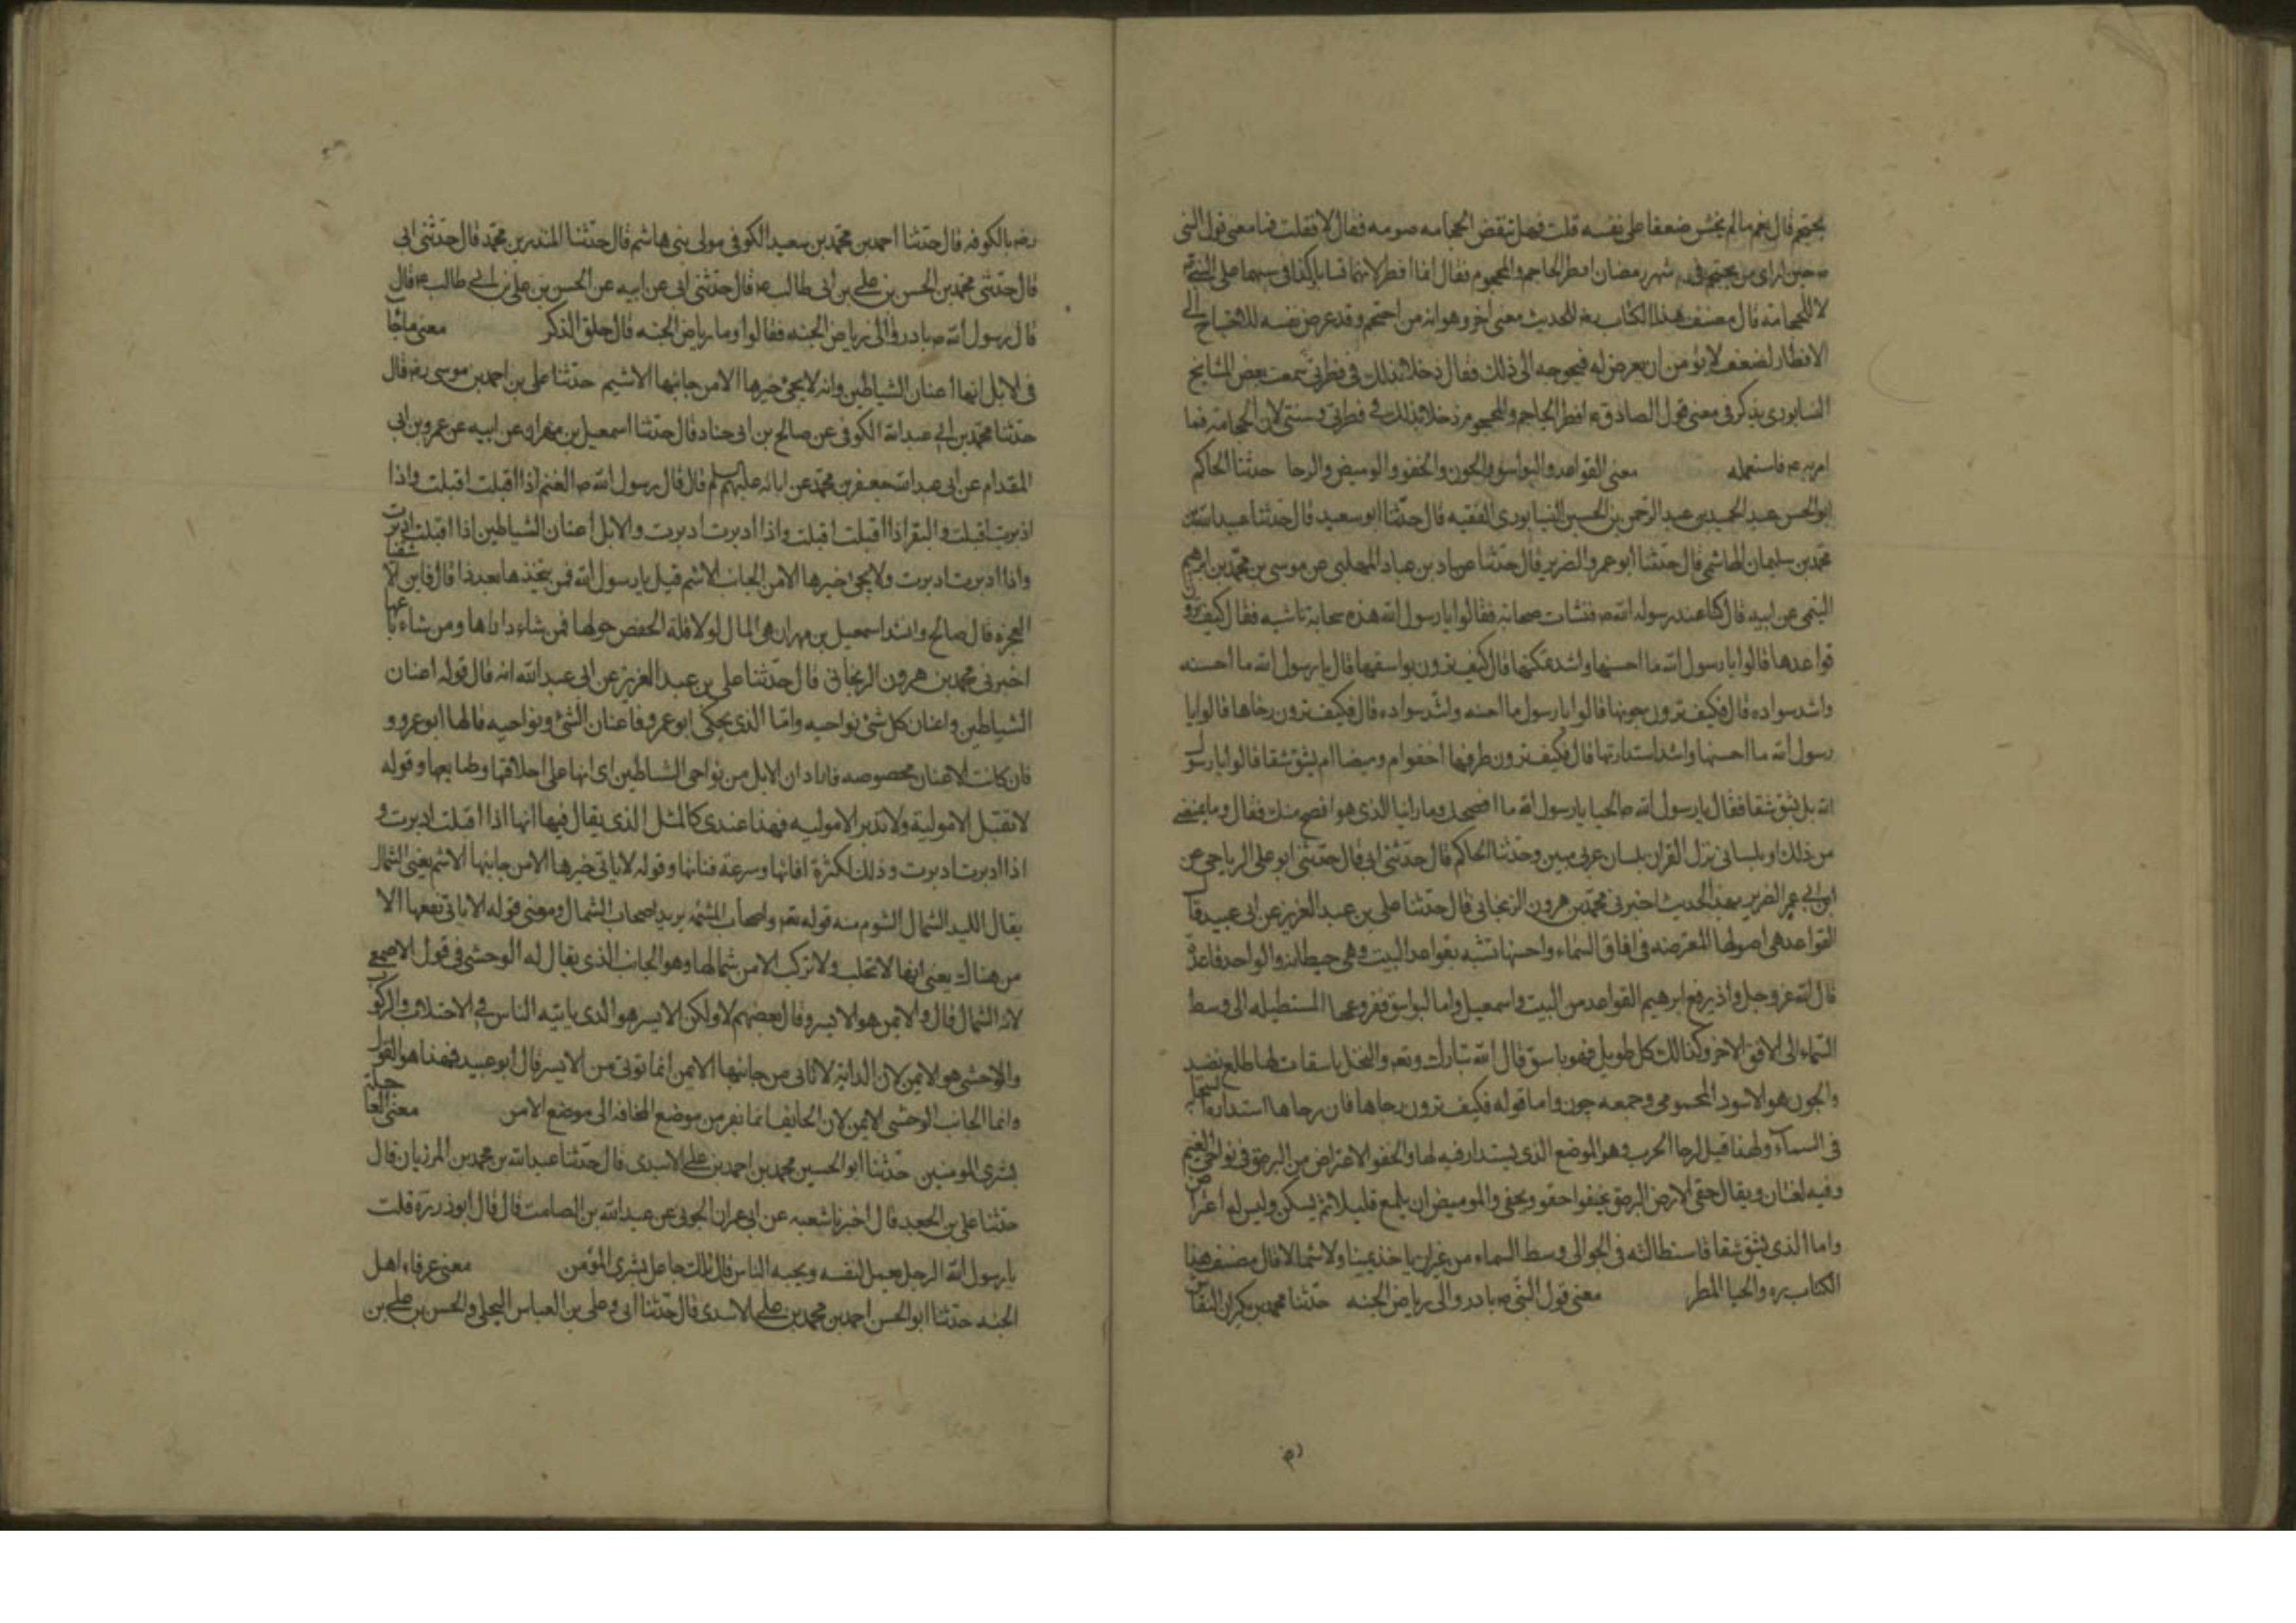 يحتجم قال نعم ما لم يخش ضعفا على نفسه قلت فهل تنقض الحجامه صومه فقال لا فقلت فما معنى قول النبى
ص حين راى من يحتجم فى شهر رمضان افطر الحاجم والمحجوم فقال انما افطرا لانهما تسابا وكذبا فى سبهما على النبى ص
لا للحجامة قال مصنف هذا الكتاب ره للحديث معنى اخر وهو ان من احتجم وقد عرض نفسه للاحتياج الى
الافطار لضعف لا يؤمن ان يعرض له فيحوجه الى ذلك فقال سمعت بعض المشايخ
النسابورى يذكر فى معنى قول الصادق ع افطر الحاجم والمحجوم دخلا بذلك فى فطرتى وسنتى لان الحجامة مما
امر به ع فاستعمله معنى القواعد والبواسق والجون والخفو والوميض والرحا حدثنا الحاكم
ابو الحسن عبد الحميد بن عبد الرحمن بن الحسين النيسابورى الفقيه قال حدثنا ابو سعيد قال حدثنا عبيد الله بن
محمد بن سليمان الهاشمى قال حدثنا ابو عمرو الضرير قال حدثنا عباد بن عباد المهلبى عن موسى بن محمد بن ابرهيم
التيمى عن ابيه قال كنا عند رسول الله ص فنشات سحابة فقالوا يا رسول الله هذه سحابة ناشيه فقال كيف ترون
قواعدها قالوا يا رسول الله ما احسنها واشد تمكنها قال كيف ترون بواسقها قال يا رسول الله ما احسنه
واشد سواده قال فكيف ترون جونها قالوا يا رسول ما احسنه واشد سواده قال فكيف ترون رحاها قالوا يا
رسول الله ما احسنها واشد استدارتها قال فكيف ترون طرفها اخفوا ام وميضا ام يشق شقا قالوا يا رسول
الله بل يشق شقا فقال يا رسول الله ص الحيا يا رسول الله ما افصحك وما راينا الذى هو افصح منك فقال وما يمنعنى
من ذلك او بلسانى نزل القران بلسان عربى مبين وحدثنا الحاكم قال حدثنى ابى قال حدثنى ابو على الرياحى عن
ابى عمر الضرير بهذا الحديث اخبرنى محمد بن هرون الزنجانى قال حدثنا على بن عبد العزيز عن ابى عبيد قال
القواعد هى اصولها المعترضه فى افاق السماء واحسبها تشبه بقواعد البيت وهى حيطانه والواحد قاعدة
قال الله عز وجل واذ يرفع ابرهيم القواعد من البيت واسمعيل واما البواسق ففروعها المستطيله الى وسط
السماء الى الافق الاخر وكذلك كل طويل فهو باسق قال الله تبارك وتعه والنخل باسقات لها طلع نضيد
والجون هو الاسود اليحمومى وجمعه جون واما قوله فكيف ترون رحاها فان رحاها استدارة السحابة
فى السماء ولهذا قيل لرحا الحرب وهو الموضع الذى يستدار فيه لها والخفو الاعتراض من البرق فى نواحى الغيم
وفيه لغتان ويقال خفى الارض البرق يخفوا خفوا ويخفى والوميض ان يلمع قليلا ثم يسكن وليس له اعتراض
واما الذى يشق شقا فاستطالته فى الجو الى وسط السماء من غير ان ياخذ يمينا ولا شمالا قال مصنف هذا
الكتاب ره والحيا المطر معنى قول النبى ص بادروا الى رياض الجنه حدثنا محمد بن بكران النقاش
رضه بالكوفه قال حدثنا احمد بن محمد بن سعيد الكوفى مولى بنى هاشم قال حدثنا المنذر بن محمد قال حدثنى ابى
قال حدثنى محمد بن الحسن بن على بن ابى طالب ع قال حدثنى ابى عن ابيه عن الحسن بن على بن ابى طالب ع قال
قال رسول الله ص بادروا الى رياض الجنه فقالوا وما رياض الجنه قال حلق الذكر معنى ما جا
فى الابل انها اعنان الشياطين وانه لا يجئ خيرها الا من جانبها الاشيم حدثنا على بن احمد بن موسى رضه قال
حدثنا محمد بن ابى عبد الله الكوفى عن صالح بن ابى حماد قال حدثنا اسمعيل بن مهران عن ابيه عن عمرو بن ابى
المقدام عن ابى عبد الله جعفر بن محمد عن ابائه عليهم السلم قال قال رسول الله ص الغنم اذا اقبلت اقبلت واذا
ادبرت اقبلت والبقر اذا اقبلت اقبلت واذا ادبرت ادبرت والابل اعنان الشياطين اذا اقبلت ادبرت
واذا ادبرت ادبرت ولا يجئ خيرها الا من الجانب الاشم قيل يا رسول الله فمن يتخذها بعد ذا قال فاين الاشقيا
الفجره قال صالح وانشد اسمعيل بن مهران هى المال لولا قلة الخفض حولها فمن شاء داراها ومن شاء باعها
اخبرنى محمد بن هرون الزنجانى قال حدثنا على بن عبد العزيز عن ابى عبد الله انه قال قوله اعنان
الشياطين واعنان كل شئ نواحيه واما الذى يحكى ابو عمرو فاعنان الشئ ونواحيه قالها ابو عمرو و
فان كانت الاعنان مخصوصه فاراد ان الابل من نواحى الشياطين اى انها على اخلاقها وطبايعها وقوله
لا تقبل الا مولية ولا تدبر الا موليه فهذا عندى كالمثل الذى يقال فيها انها اذا اقبلت ادبرت و
اذا ادبرت ادبرت وذلك لكثرة افاتها وسرعة فنائها وقوله لا ياتى خيرها الا من جانبها الاشم يعنى الشمال
يقال لليد الشمال الشوم منه قوله تعه واصحاب المشئمه يريد اصحاب الشمال ومعنى قوله لا ياتى نفعها الا
من هناك يعنى انها لا تحلب ولا تركب الا من شمالها وهو الجانب الذى يقال له الوحشى فى قول الاصمعى
لانه الشمال قال والايمن هو الايسر وقال بعضهم لا ولكن الايسر هو الذى ياتيه الناس فى الاحتلاب والركوب
والوحشى هو الايمن لان الدابة لا تاتى من جانبها الايمن انما توتى من الايسر قال ابو عبيد فهذا هو القول
وانما الجانب الوحشى الايمن لان الخايف انما يفر من موضع المخافه الى موضع الامن معنى العاجلة
بشرى المومنين حدثنا ابو الحسين محمد بن احمد بن على الاسدى قال حدثنا عبد الله بن محمد بن المرزبان قال
حدثنا على بن الجعد قال اخبرنا شعبه عن ابى عمران الجونى عن عبد الله بن الصامت قال قال ابو ذر ره قلت
يا رسول الله الرجل يعمل لنفسه ويحبه الناس قال تلك عاجل بشرى المؤمن معنى عرفاء اهل
الجنه حدثنا ابو الحسن احمد بن محمد بن على الاسدى قال حدثنا ابى وعلى بن العباس البجلى والحسن بن على بن